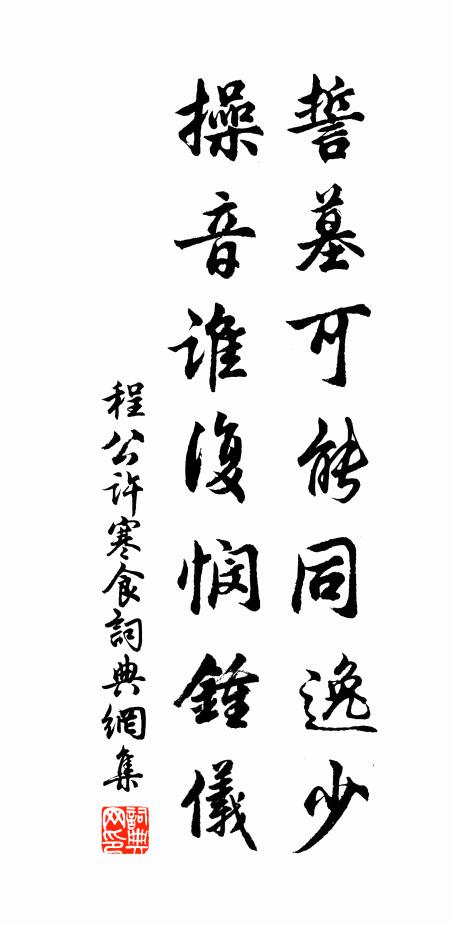 誓墓可能同逸少
操音誰復憫鍾儀
程公許寒食詞典網集
詞典网印